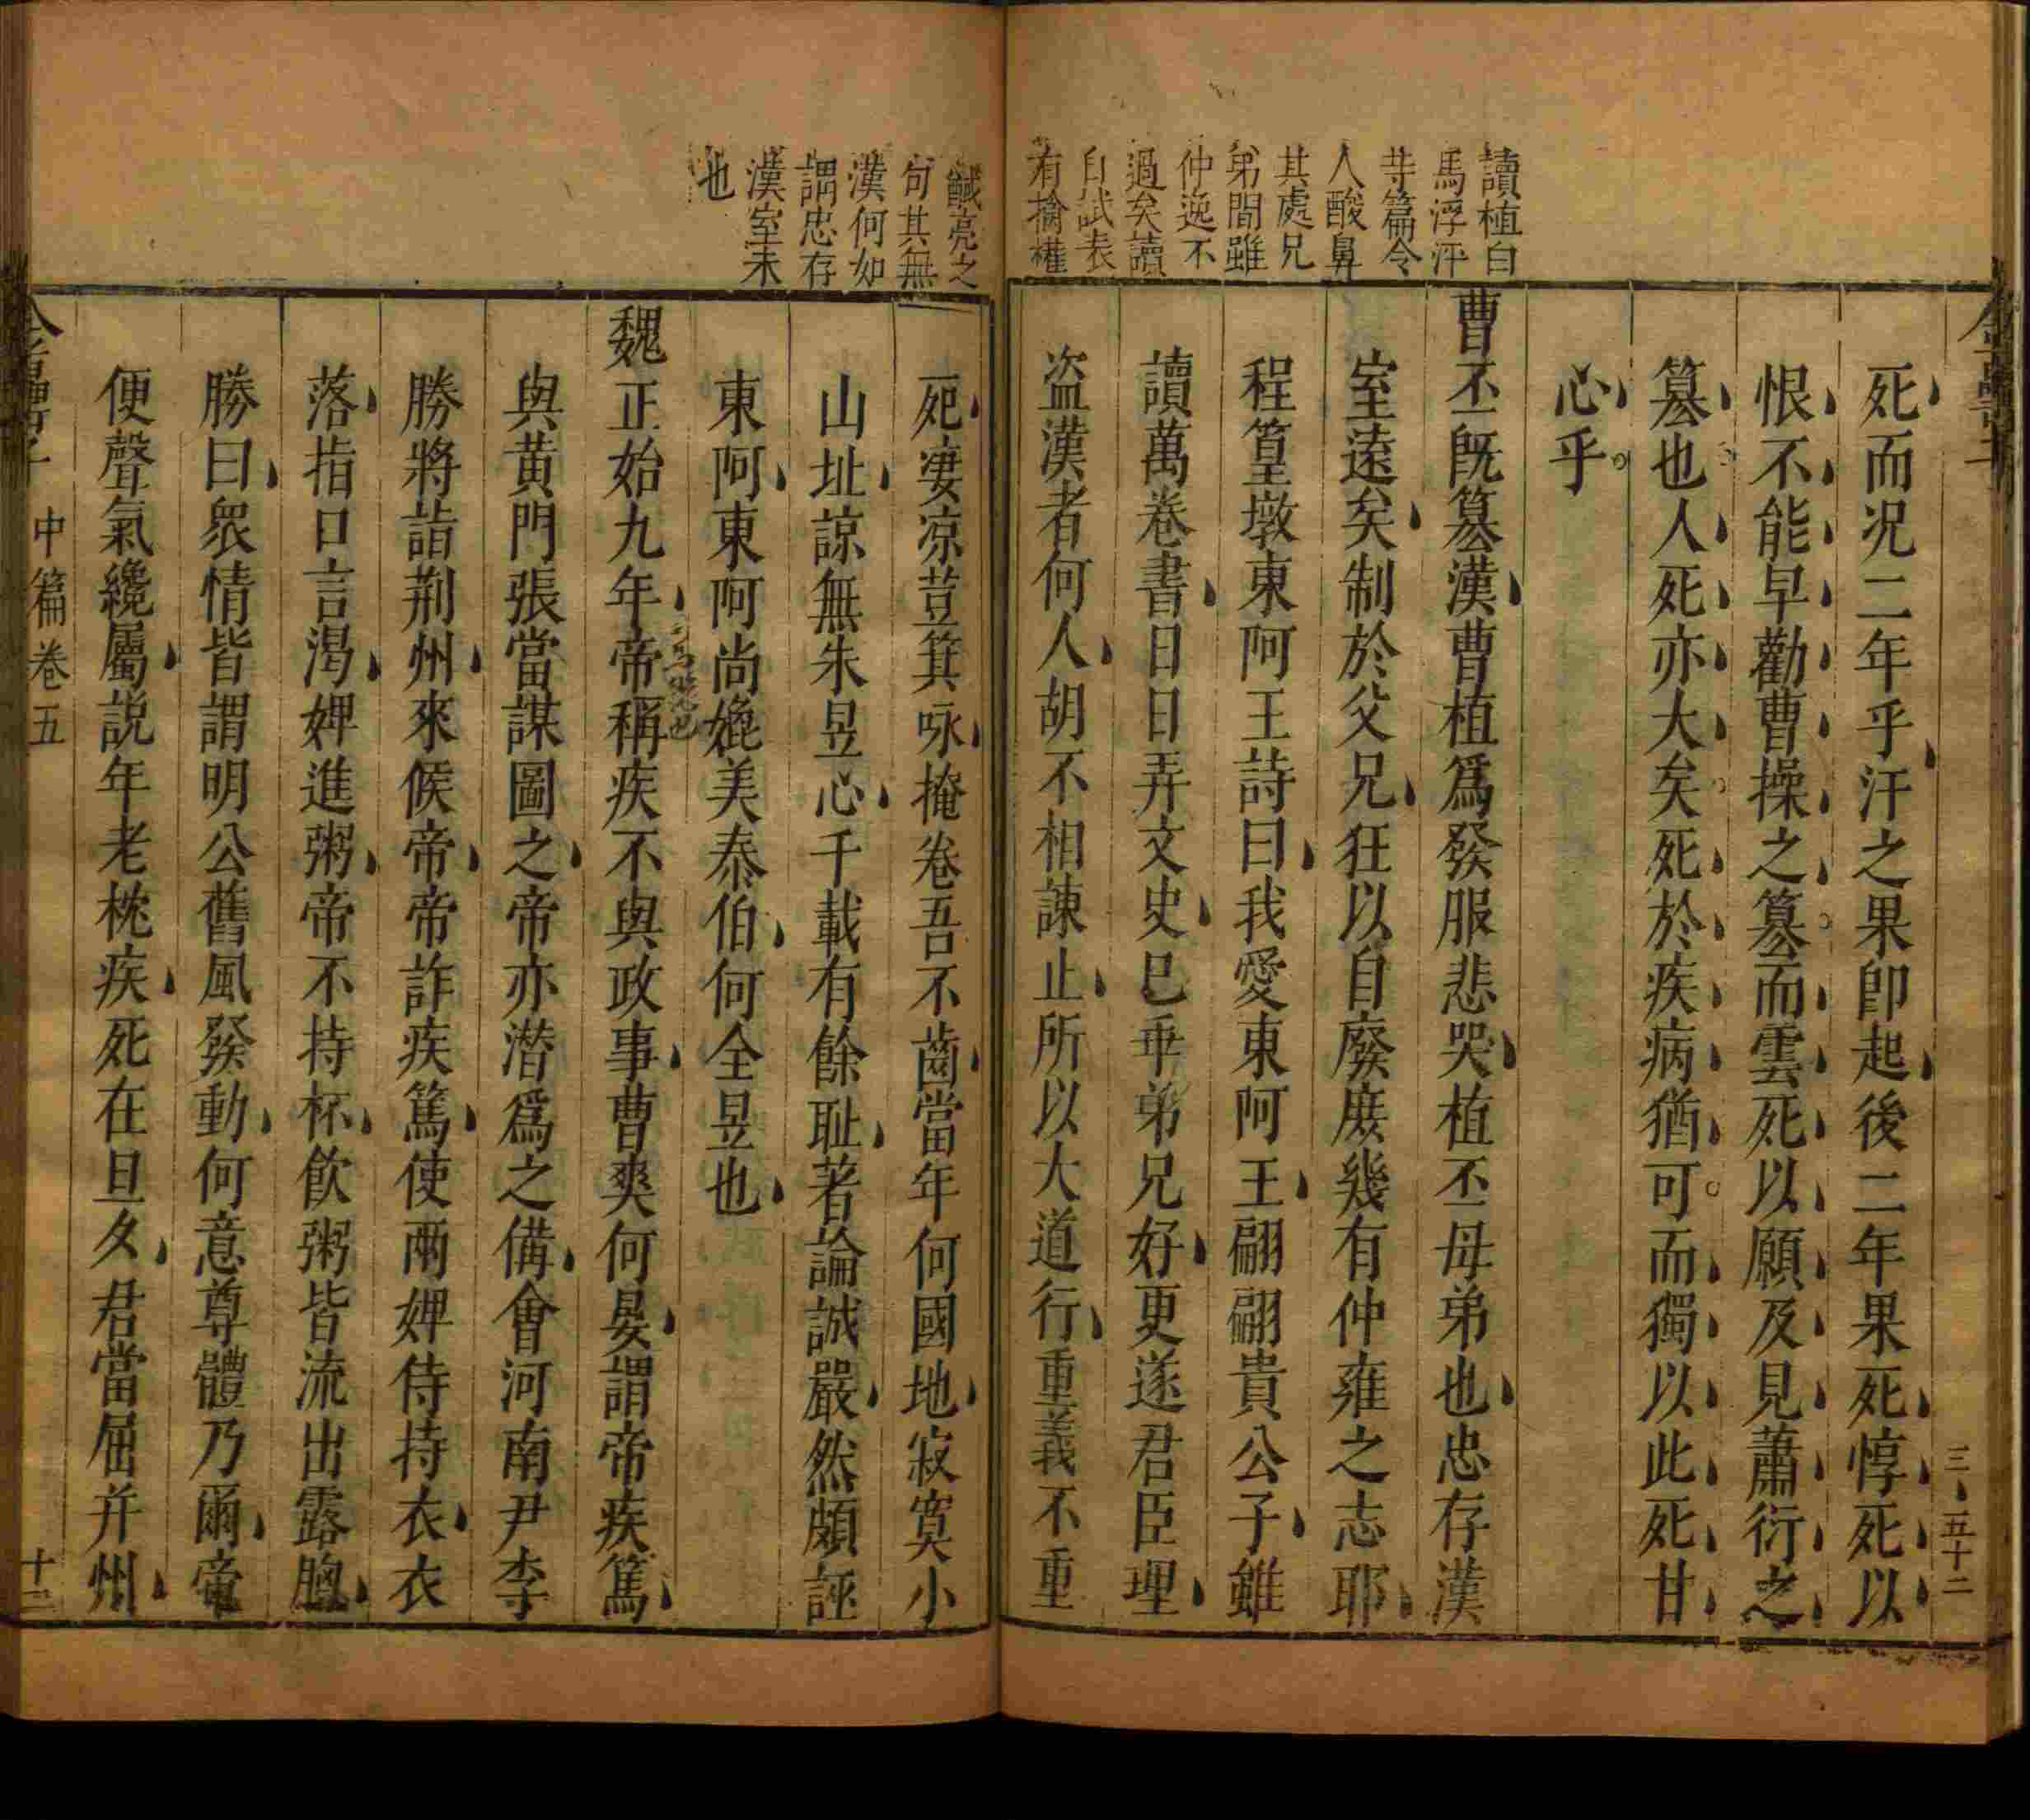 讀植白
馬浮汧
等篇令
人酸鼻
其處兄
弟間雖
仲逸不
過矣讀
自試表
有擒權
馘亮之
句其無
漢何如
謂忠存
漢室未
也
三、五十二
死而况二年乎汗之果卽起後二年果死惇死以
恨不能早勸曹操之篡而雲死以願及見蕭衍之
篡也人死亦大矣死於疾病猶可而獨以此死甘
心乎
曹丕旣篡漢曹植爲發服悲哭植丕母弟也忠存漢
室遠矣制於父兄狂以自廢庶幾有仲雍之志耶
程篁墩東阿王詩曰我愛東阿王翩翩貴公子雖
讀萬卷書日日弄文史已乖弟兄好更遂君臣理
盗漢者何人胡不相諫止所以大道行重義不重
死凄凉荳箕咏掩卷吾不齒當年何國地寂寞小
山址諒無朱昱心千載有餘耻著論誠嚴然頗誣
東阿東阿尚媲美泰伯何全昱也
魏正始九年帝稱疾不與政事曹爽何晏謂帝疾篤
與黄門張當謀圖之帝亦潛爲之備會河南尹李
勝將詣荆州來候帝帝詐疾篤使兩婢侍持衣衣
落指口言渴婢進粥帝不持杯飲粥皆流出露胸
勝曰衆情皆謂明公舊風發動何意尊體乃爾帝
便聲氣纔屬說年老枕疾死在旦夕君當屈并州
中篇卷五